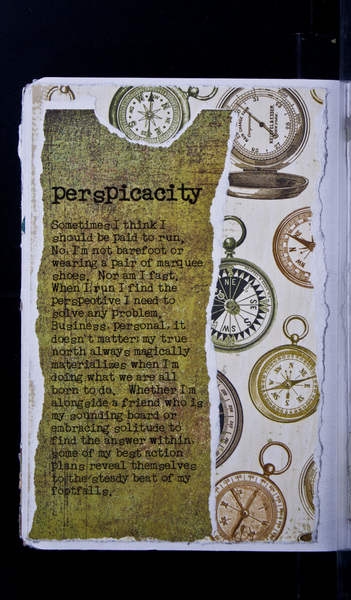 perspicacity
Sometimes I think I
should be paid to run.
No, I'm not barefoot or
wearing a pair of marquee
shoes. Nor am I fast.
When I run I find the
perspective I need to
solve any problem.
Business, personal, it
doesn't matter; my true
north always magically
materializes when I'm
doing what we are all
born to do. Whether I'm
alongside a friend who is
my sounding board or
embracing solitude to
find the answer within,
some of my best action
plans reveal themselves
to the steady beat of my
footfalls.
NE
SE
SW